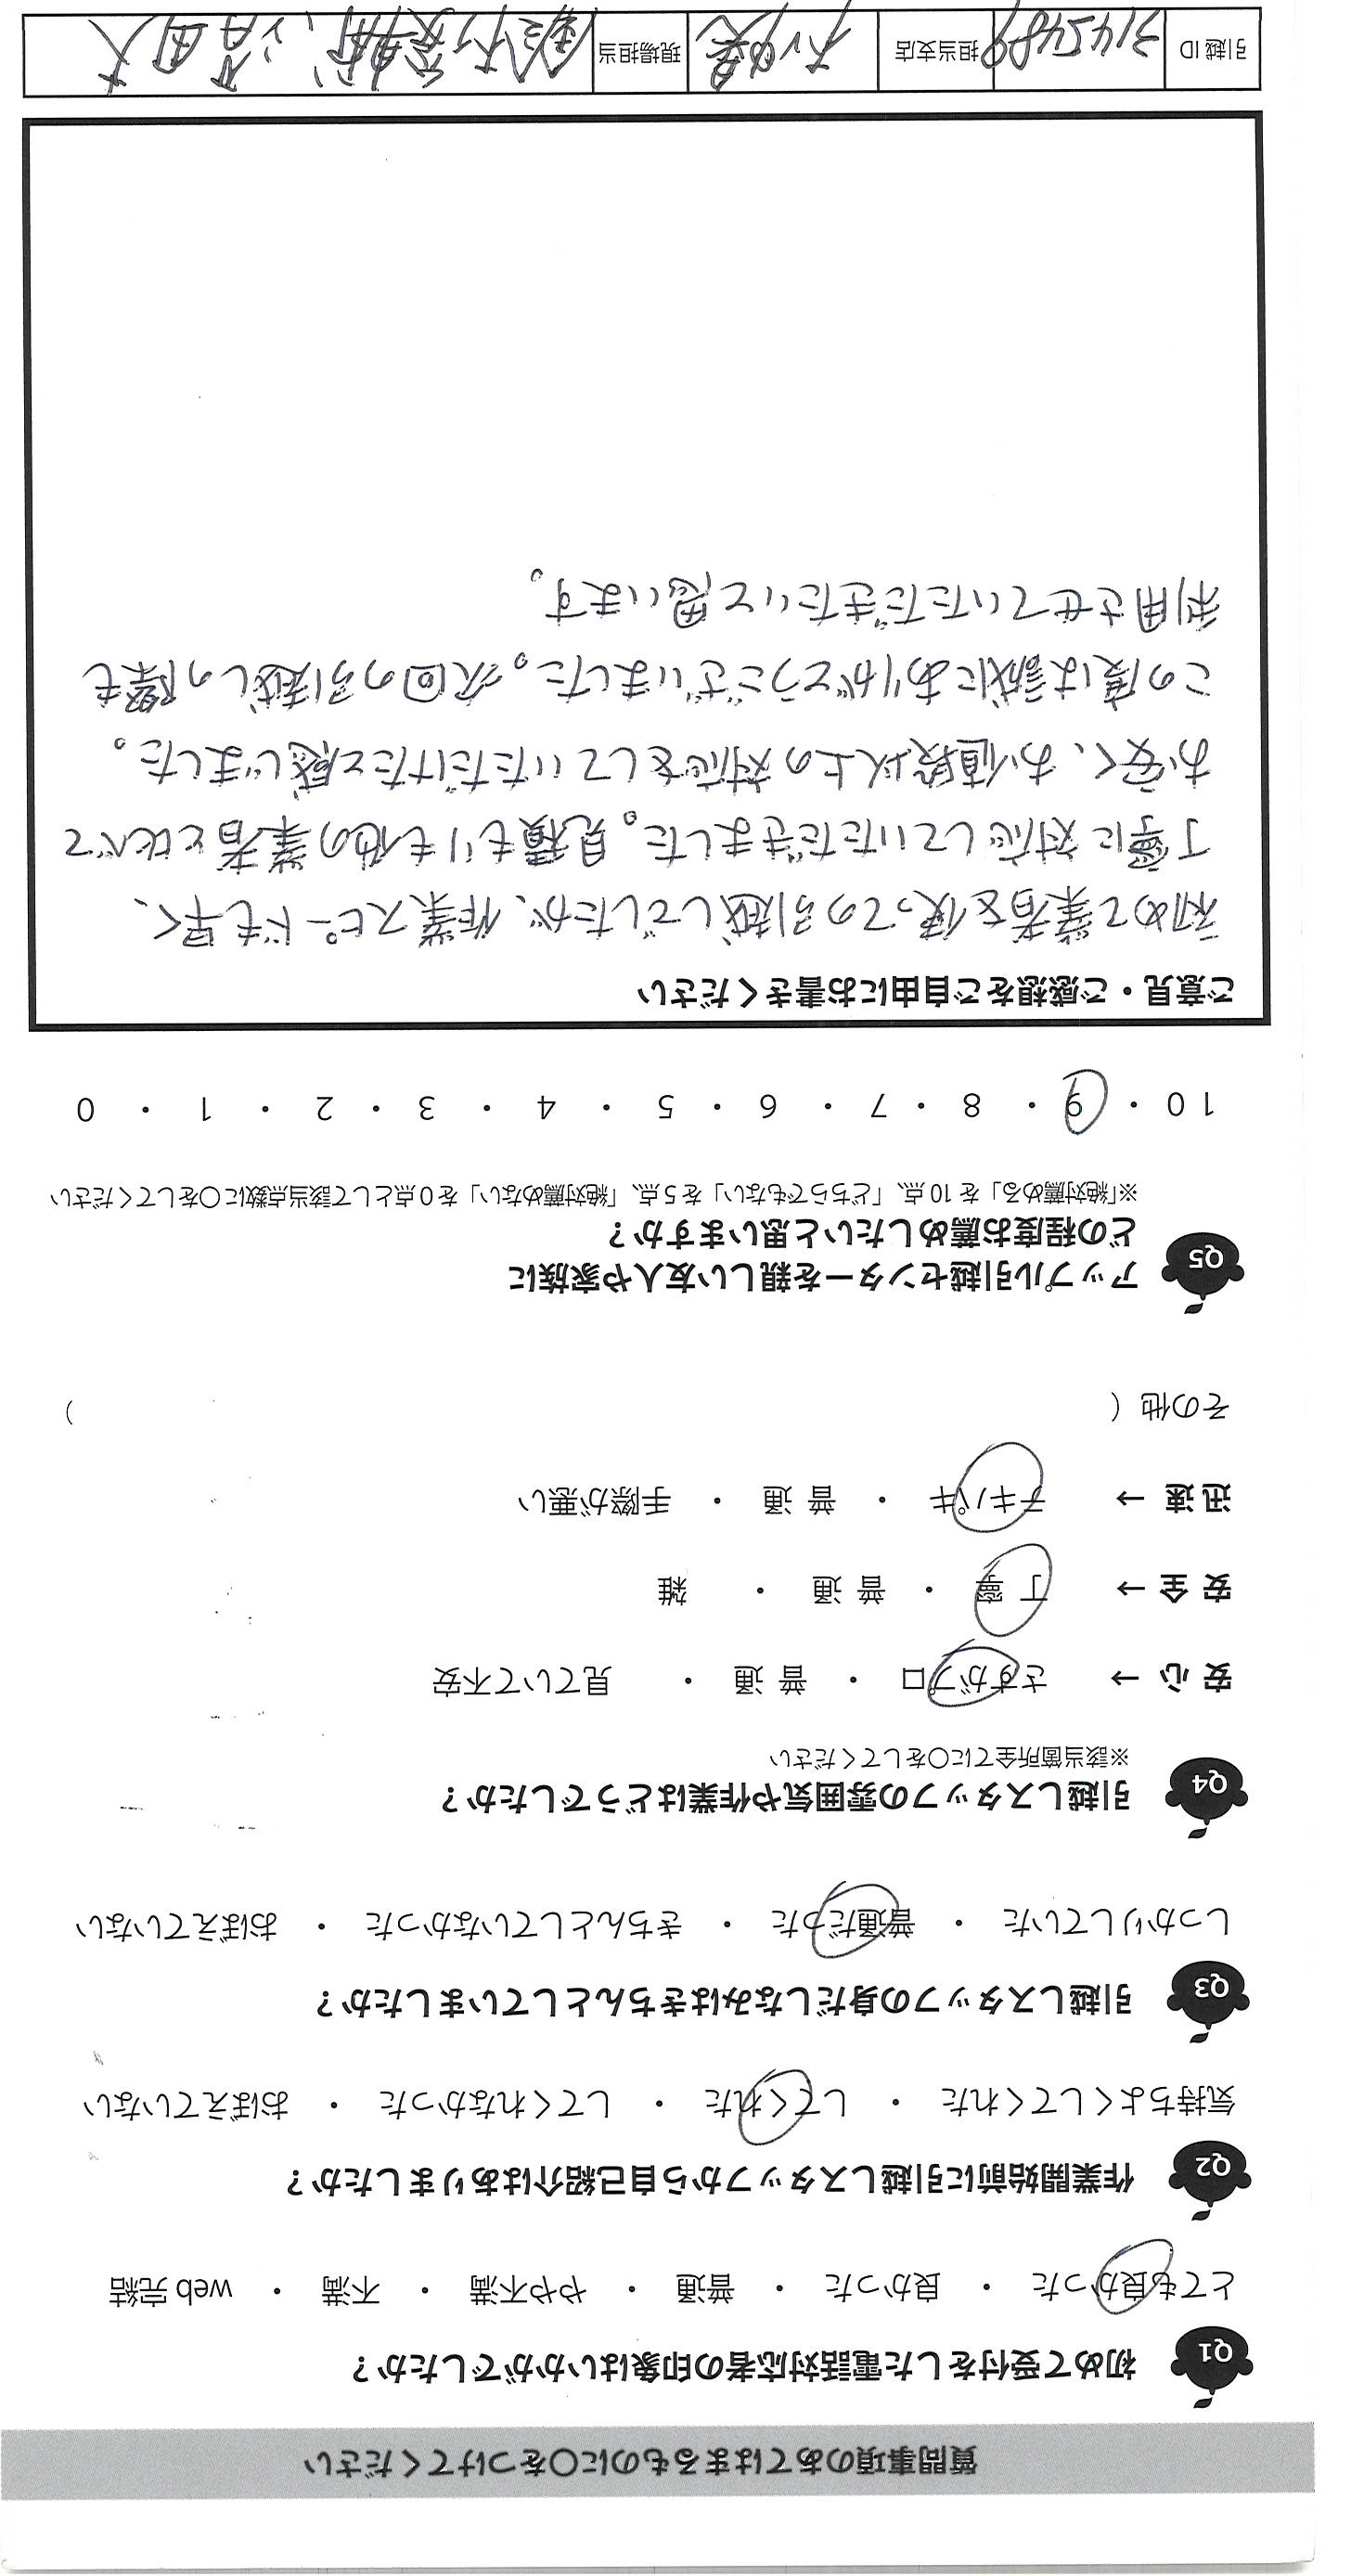 質問事項のあてはまるものに○をつけてください
Q1 初めて受付をした電話対応者の印象はいかがでしたか？
とても良かった ・ 良かった ・ 普通 ・ やや不満 ・ 不満 ・ web 完結
Q2 作業開始前に引越しスタッフから自己紹介はありましたか？
気持ちよくしてくれた ・ してくれた ・ してくれなかった ・ おぼえていない
Q3 引越しスタッフの身だしなみはきちんとしていましたか？
しっかりしていた ・ 普通だった ・ きちんとしていなかった ・ おぼえていない
Q4 引越しスタッフの雰囲気や作業はどうでしたか？
※該当箇所全てに○をしてください
安 心 → さすがプロ ・ 普 通 ・ 見ていて不安
安 全 → 丁 寧 ・ 普 通 ・ 雑
迅 速 → テキパキ ・ 普 通 ・ 手際が悪い
その他 (　)
Q5 アップル引越センターを親しい友人や家族に
どの程度お薦めしたいと思いますか？
※「絶対薦める」を 10 点、「どちらでもない」を 5 点、「絶対薦めない」を 0 点として該当点数に○をしてください
10 ・ 9 ・ 8 ・ 7 ・ 6 ・ 5 ・ 4 ・ 3 ・ 2 ・ 1 ・ 0
ご意見・ご感想をご自由にお書きください
初めて業者を使っての引越しでしたが、作業スピードも早く、
丁寧に対応していただきました。見積もりも他の業者と比べて
お安く、お値段以上の対応をしていただけたと感じました。
この度は誠にありがとうございました。次回の引越しの際も
利用させていただきたいと思います。
引越 ID 3145489 担当支店 現場担当